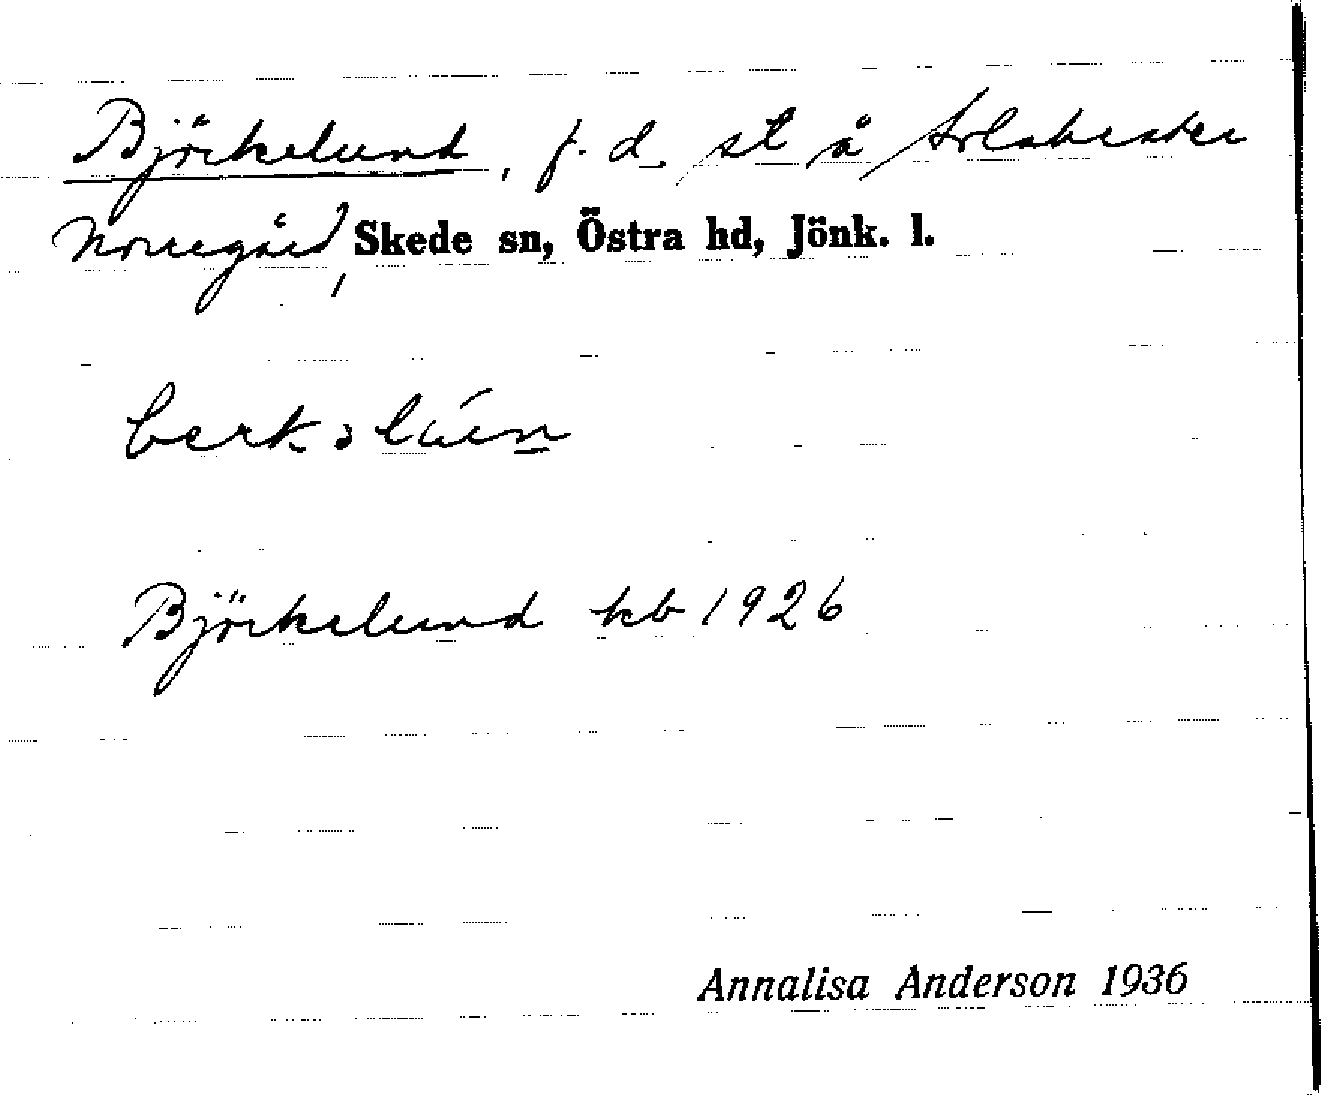 Björkelund, f. d. st å Solabrster
Norregård, Skede sn, Östra hd, Jönk. l.
Björkelund kb 1926
Annalisa Anderson 1936